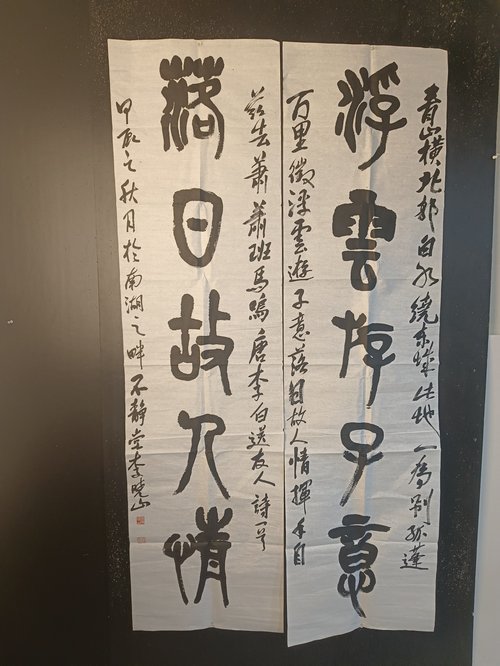 青山橫北郭白水繞東城此地一為別孤蓬
浮雲斿子意
万里徵浮雲遊子意落日故人情揮手自
茲去蕭蕭班馬鳴唐李白送友人詩一首
落日故人情
甲辰之秋月於南湖之畔不靜堂李曉山